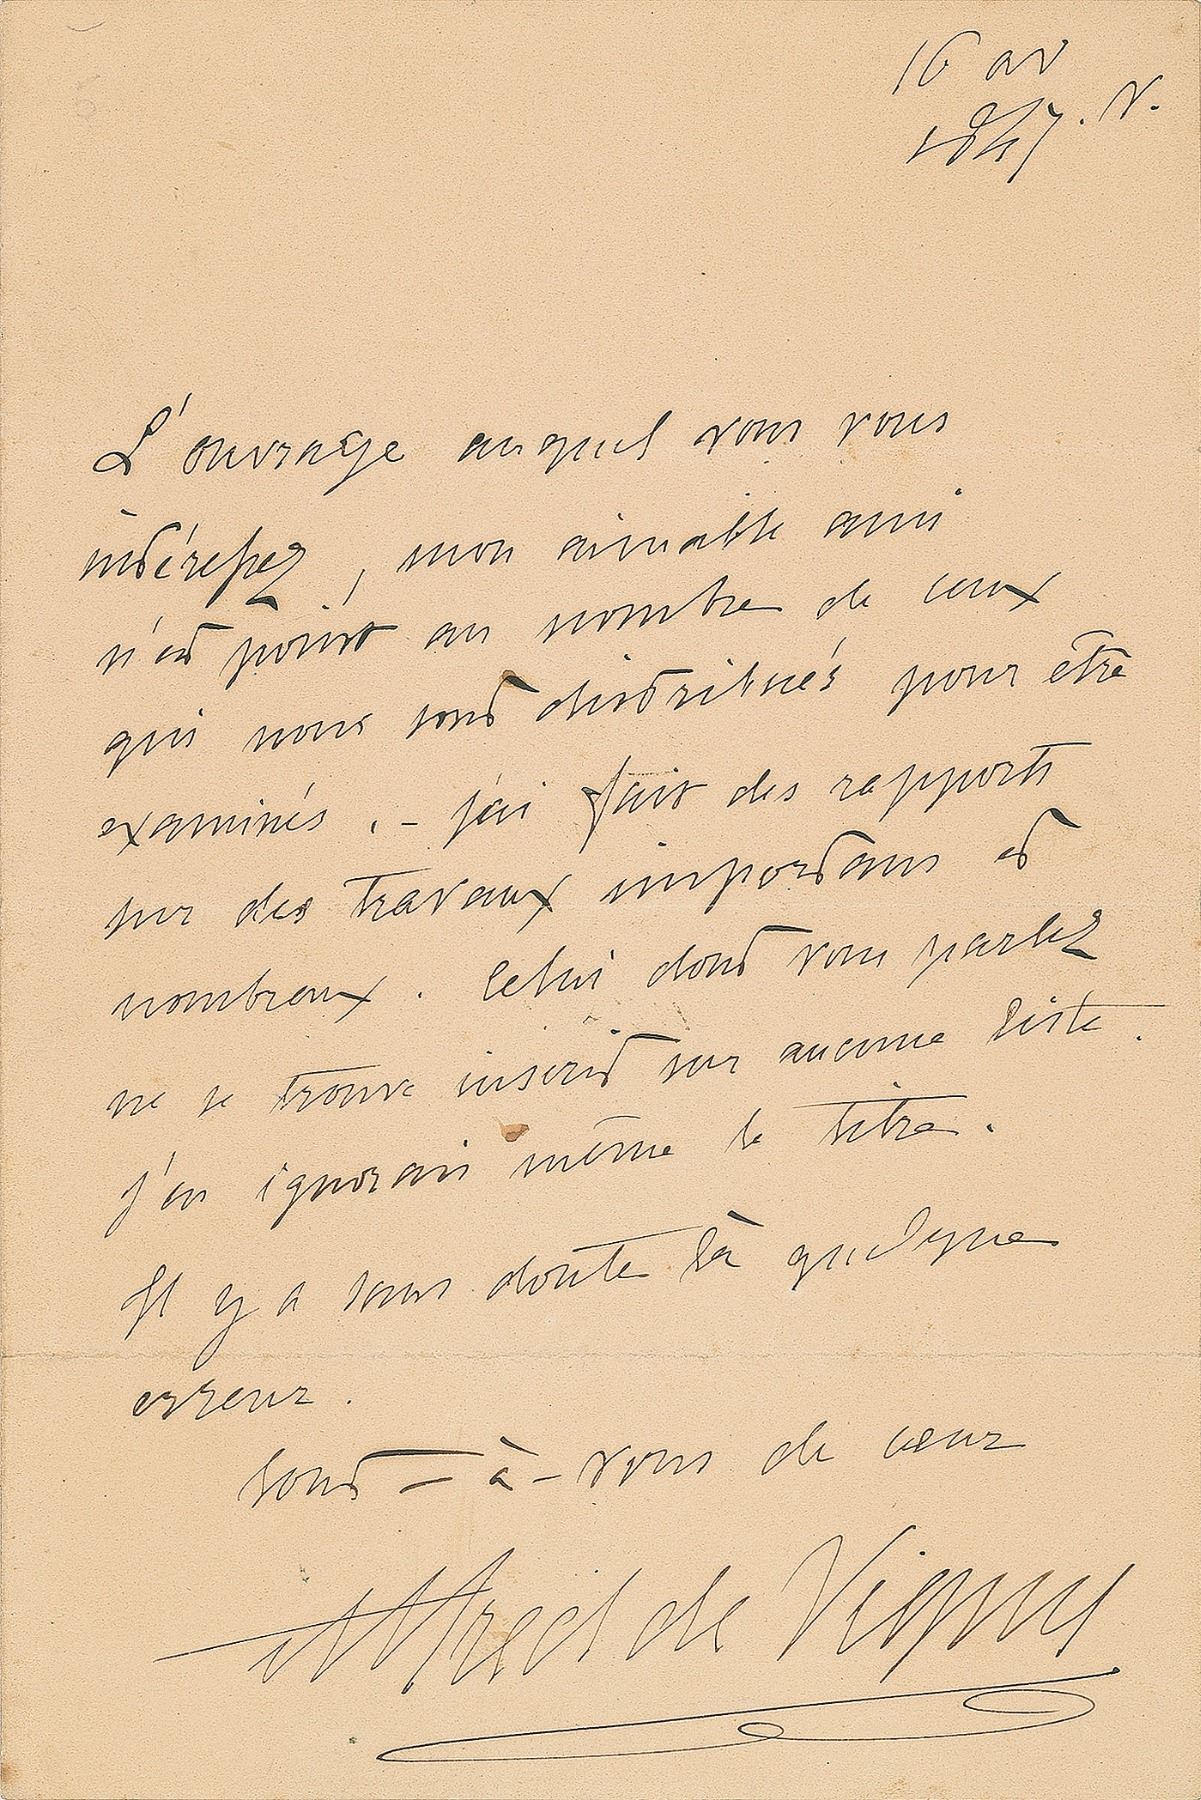 16 av
1847. V.
L'ouvrage auquel vous vous
intéressez, mon aimable ami
n'est point au nombre de ceux
qui nous sont distribués pour être
examinés. - j'ai fait des rapports
sur des travaux importans et
nombreux. Celui dont vous parlez
ne se trouve inscrit sur aucune liste.
j'en ignorais même le titre.
Il y a sans doute là quelque
erreur.
tout - à - vous de cœur
Alfred de Vigny